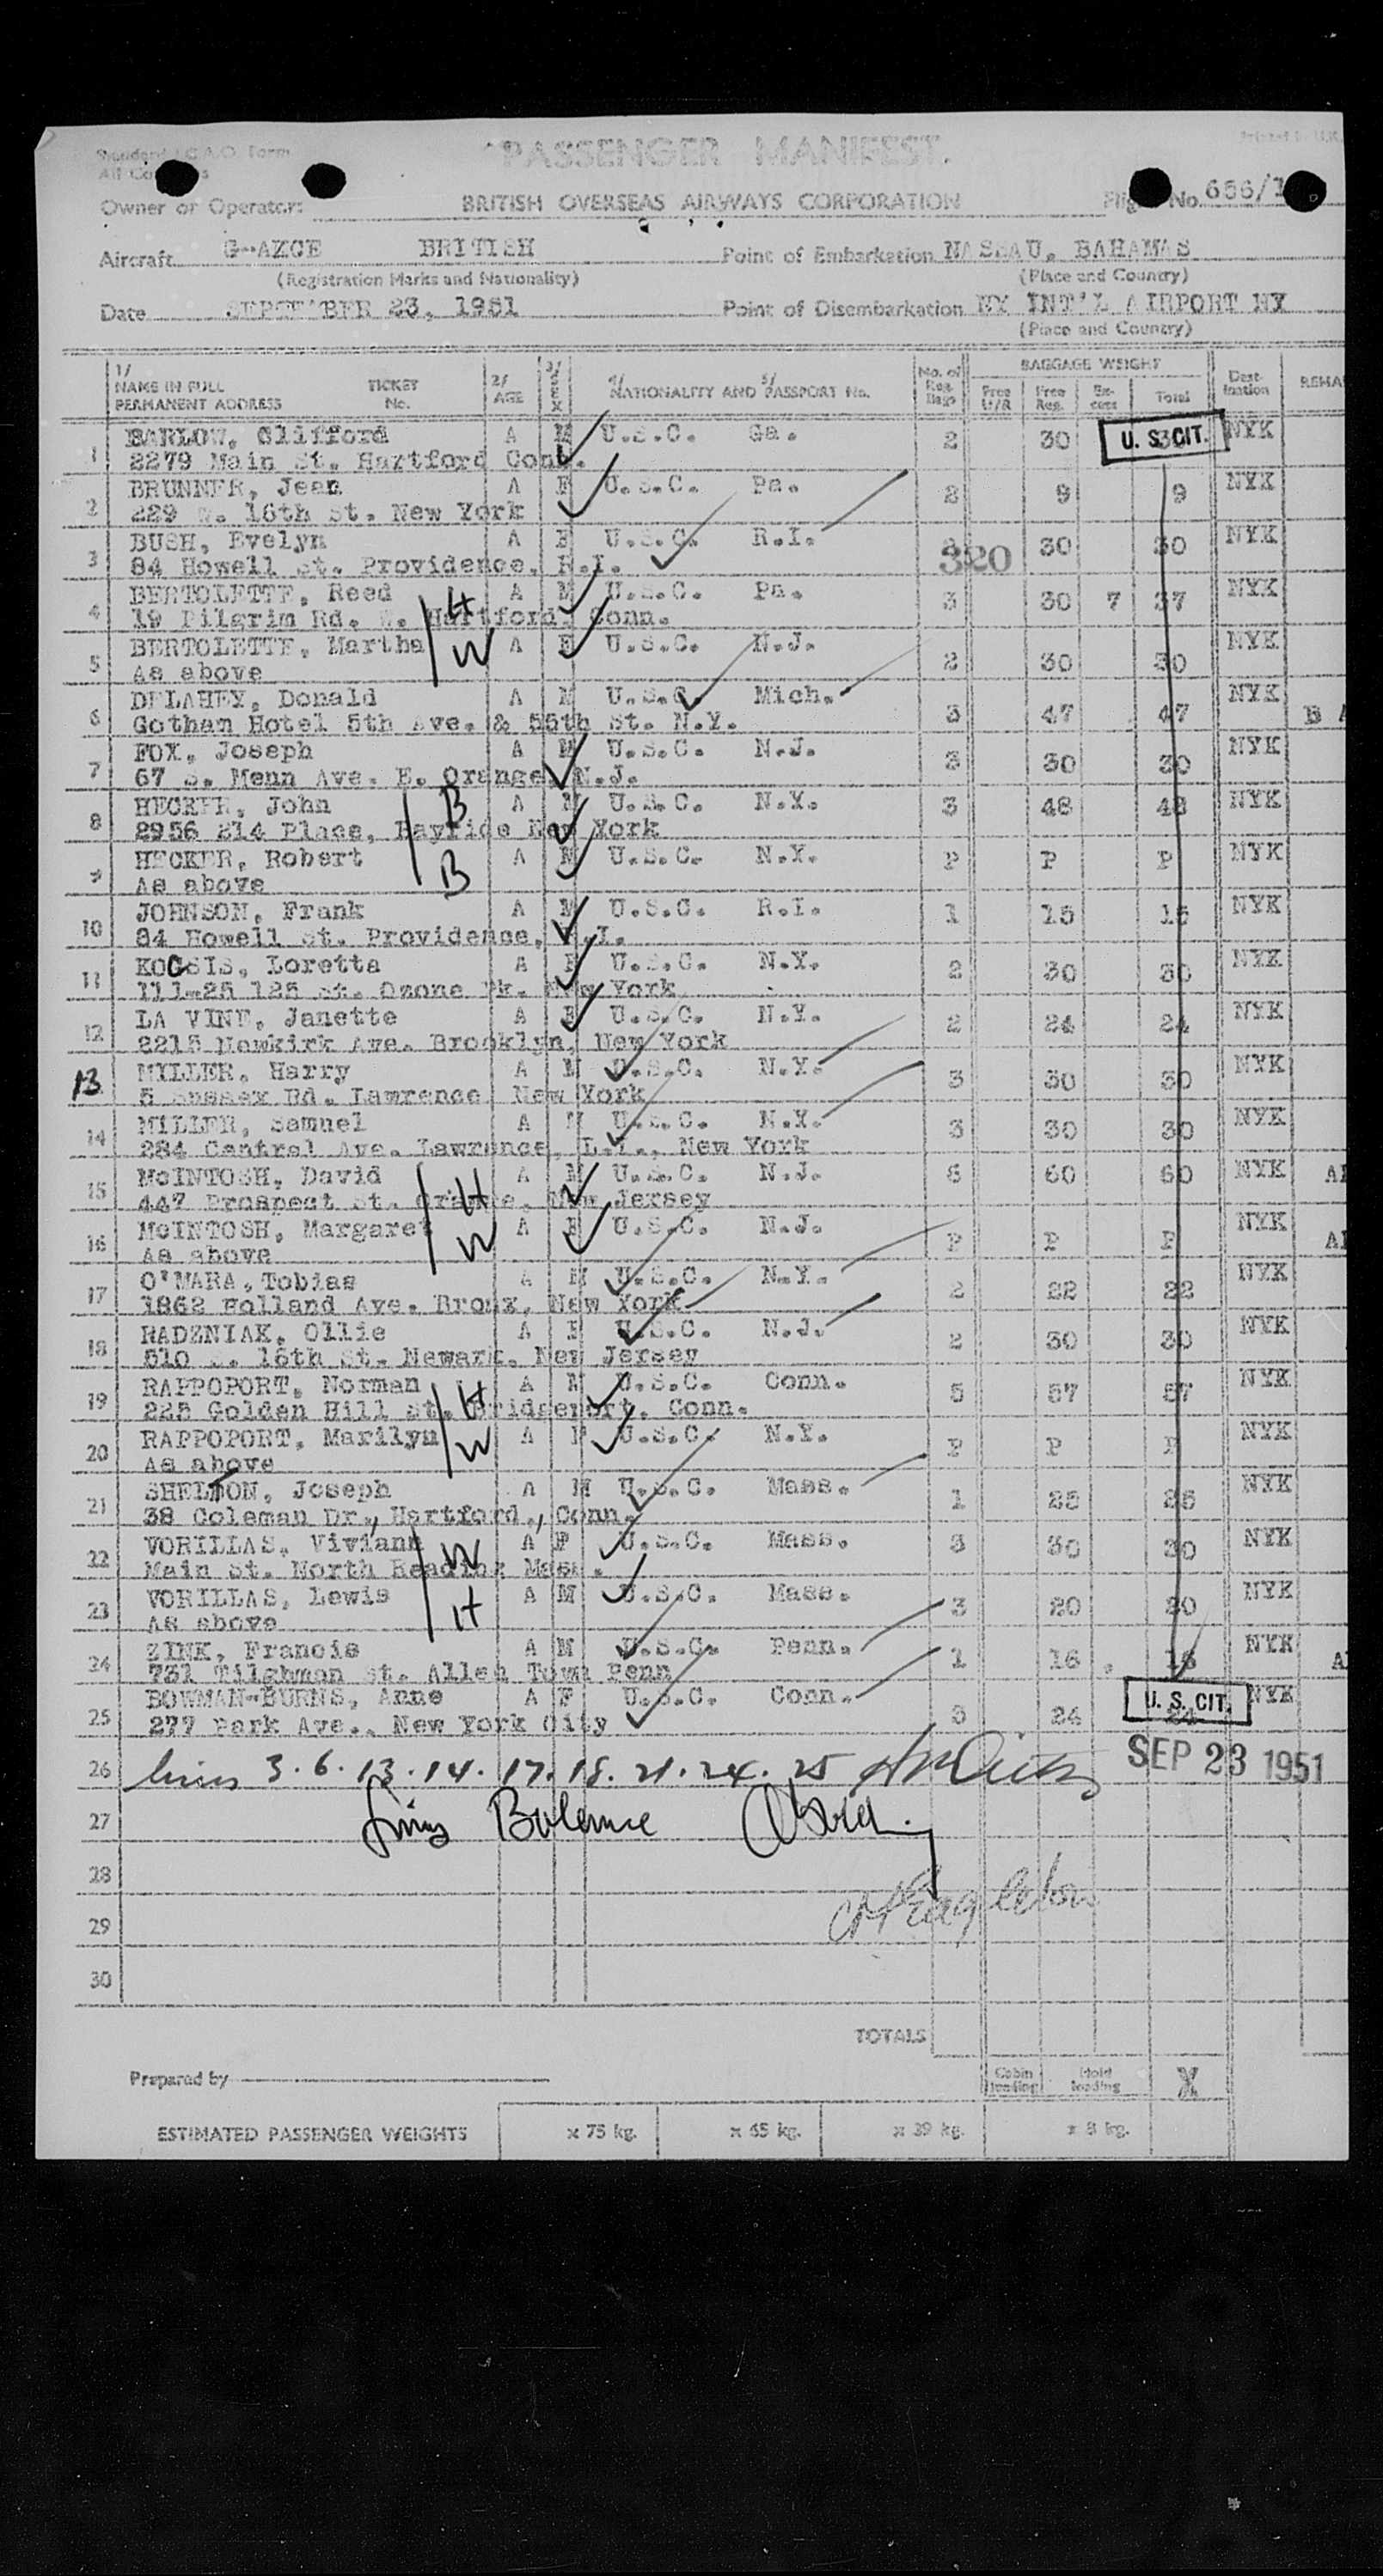 Standard I.C.A.O. Form
PASSENGER MANIFEST.
Owner or Operator: BRITISH OVERSEAS AIRWAYS CORPORATION Flight No. 656/1
Aircraft G-AKCE BRITISH Point of Embarkation NASSAU, BAHAMAS
(Registration Marks and Nationality) (Place and Country)
Date SEPTEMBER 23, 1951 Point of Disembarkation NY INT'L AIRPORT NY
(Place and Country)
1/ NAME IN FULL PERMANENT ADDRESS TICKET No. 2/ AGE 3/ SEX 4/ NATIONALITY AND 5/ PASSPORT No. No. of Reg. Bags BAGGAGE WEIGHT Free U/R Free Reg. Excess Total Destination REMA
1 BARLOW, Clifford A M U.S.C. Ga. 2 30 U. S. CIT. NYK
2279 Main St. Hartford Conn.
2 BRUNNER, Jean A F U.S.C. Pa. 2 9 9 NYK
229 W. 16th St. New York
3 BUSH, Evelyn A F U.S.C. R.I. 320 30 30 NYK
84 Howell St. Providence, R.I.
4 BERTOLETTE, Reed H A M U.S.C. Pa. 3 30 7 37 NYK
19 Pilgrim Rd. W. Hartford, Conn.
5 BERTOLETTE, Martha W A F U.S.C. N.J. 2 30 30 NYK
As above
6 DELAHEY, Donald A M U.S.C. Mich. 3 47 47 NYK B A
Gotham Hotel 5th Ave. & 55th St. N.Y.
7 FOX, Joseph A M U.S.C. N.J. 3 30 30 NYK
67 S. Menn Ave. E. Orange, N.J.
8 HECKER, John B A M U.S.C. N.Y. 3 48 48 NYK
2956 214 Place, Bayside New York
9 HECKER, Robert B A M U.S.C. N.Y. P P P NYK
As above
10 JOHNSON, Frank A M U.S.C. R.I. 1 15 15 NYK
84 Howell St. Providence, R.I.
11 KOCSIS, Loretta A F U.S.C. N.Y. 2 30 30 NYK
111-25 125 St. Ozone Pk. New York
12 LA VINE, Janette A F U.S.C. N.Y. 2 24 24 NYK
2215 Newkirk Ave. Brooklyn, New York
13 MILLER, Harry A M U.S.C. N.Y. 3 30 30 NYK
5 Sussex Rd. Lawrence New York
14 MILLER, Samuel A M U.S.C. N.Y. 3 30 30 NYK
284 Central Ave. Lawrence, L.I., New York
15 McINTOSH, David H A M U.S.C. N.J. 6 60 60 NYK
447 Prospect St. Orange, New Jersey
16 McINTOSH, Margaret W A F U.S.C. N.J. P P P NYK
As above
17 O'MARA, Tobias A M U.S.C. N.Y. 2 22 22 NYK
1862 Holland Ave. Bronx, New York
18 RADZNIAK, Ollie A F U.S.C. N.J. 2 30 30 NYK
510 S. 16th St. Newark, New Jersey
19 RAPPOPORT, Norman H A M U.S.C. Conn. 5 57 57 NYK
225 Golden Hill St. Bridgeport, Conn.
20 RAPPOPORT, Marilyn W A F U.S.C. N.Y. P P P NYK
As above
21 SHELTON, Joseph A M U.S.C. Mass. 1 25 25 NYK
38 Coleman Dr., Hartford., Conn.
22 VORILLAS, Viviann W A F U.S.C. Mass. 3 30 30 NYK
Main St. North Reading Mass.
23 VORILLAS, Lewis H A M U.S.C. Mass. 3 20 20 NYK
As above
24 ZINK, Francis A M U.S.C. Penn. 1 16 16 NYK A
731 Tilghman St. Allen Town Penn
25 BOWMAN-BURNS, Anne A F U.S.C. Conn. 3 24 24 U. S. CIT. NYK
277 Park Ave., New York City
26 lines 3.6.13.14.17.18.21.24.25 SEP 23 1951
27 lines Balance
28
29
30
TOTALS
Prepared by Cabin loading Hold loading X
ESTIMATED PASSENGER WEIGHTS x 75 kg. x 65 kg. x 39 kg. x 8 kg.